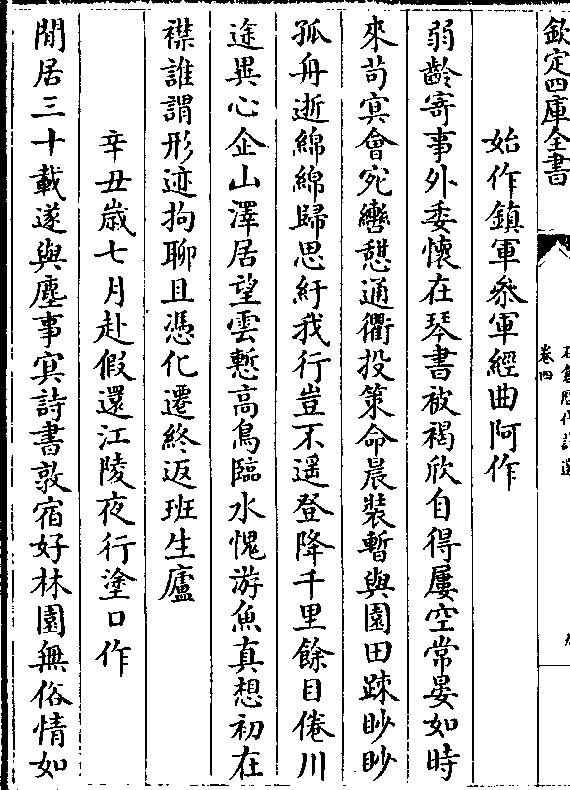 欽定四庫全書
卷四
始作鎮軍參軍經曲阿作
弱齡寄事外委懷在琴書被褐欣自得屢空常晏如時
來茍㝠會宛轡憇通衢投策命晨裝暫與園田踈眇眇
孤舟逝綿綿歸思紆我行豈不遥登降千里餘目倦川
途異心企山澤居望雲慙高鳥臨水愧游魚真想初在
襟誰謂形迹拘聊且憑化遷終返班生廬
辛丑歳七月赴假還江陵夜行塗口作
閒居三十載遂與塵事㝠詩書敦宿好林園無俗情如